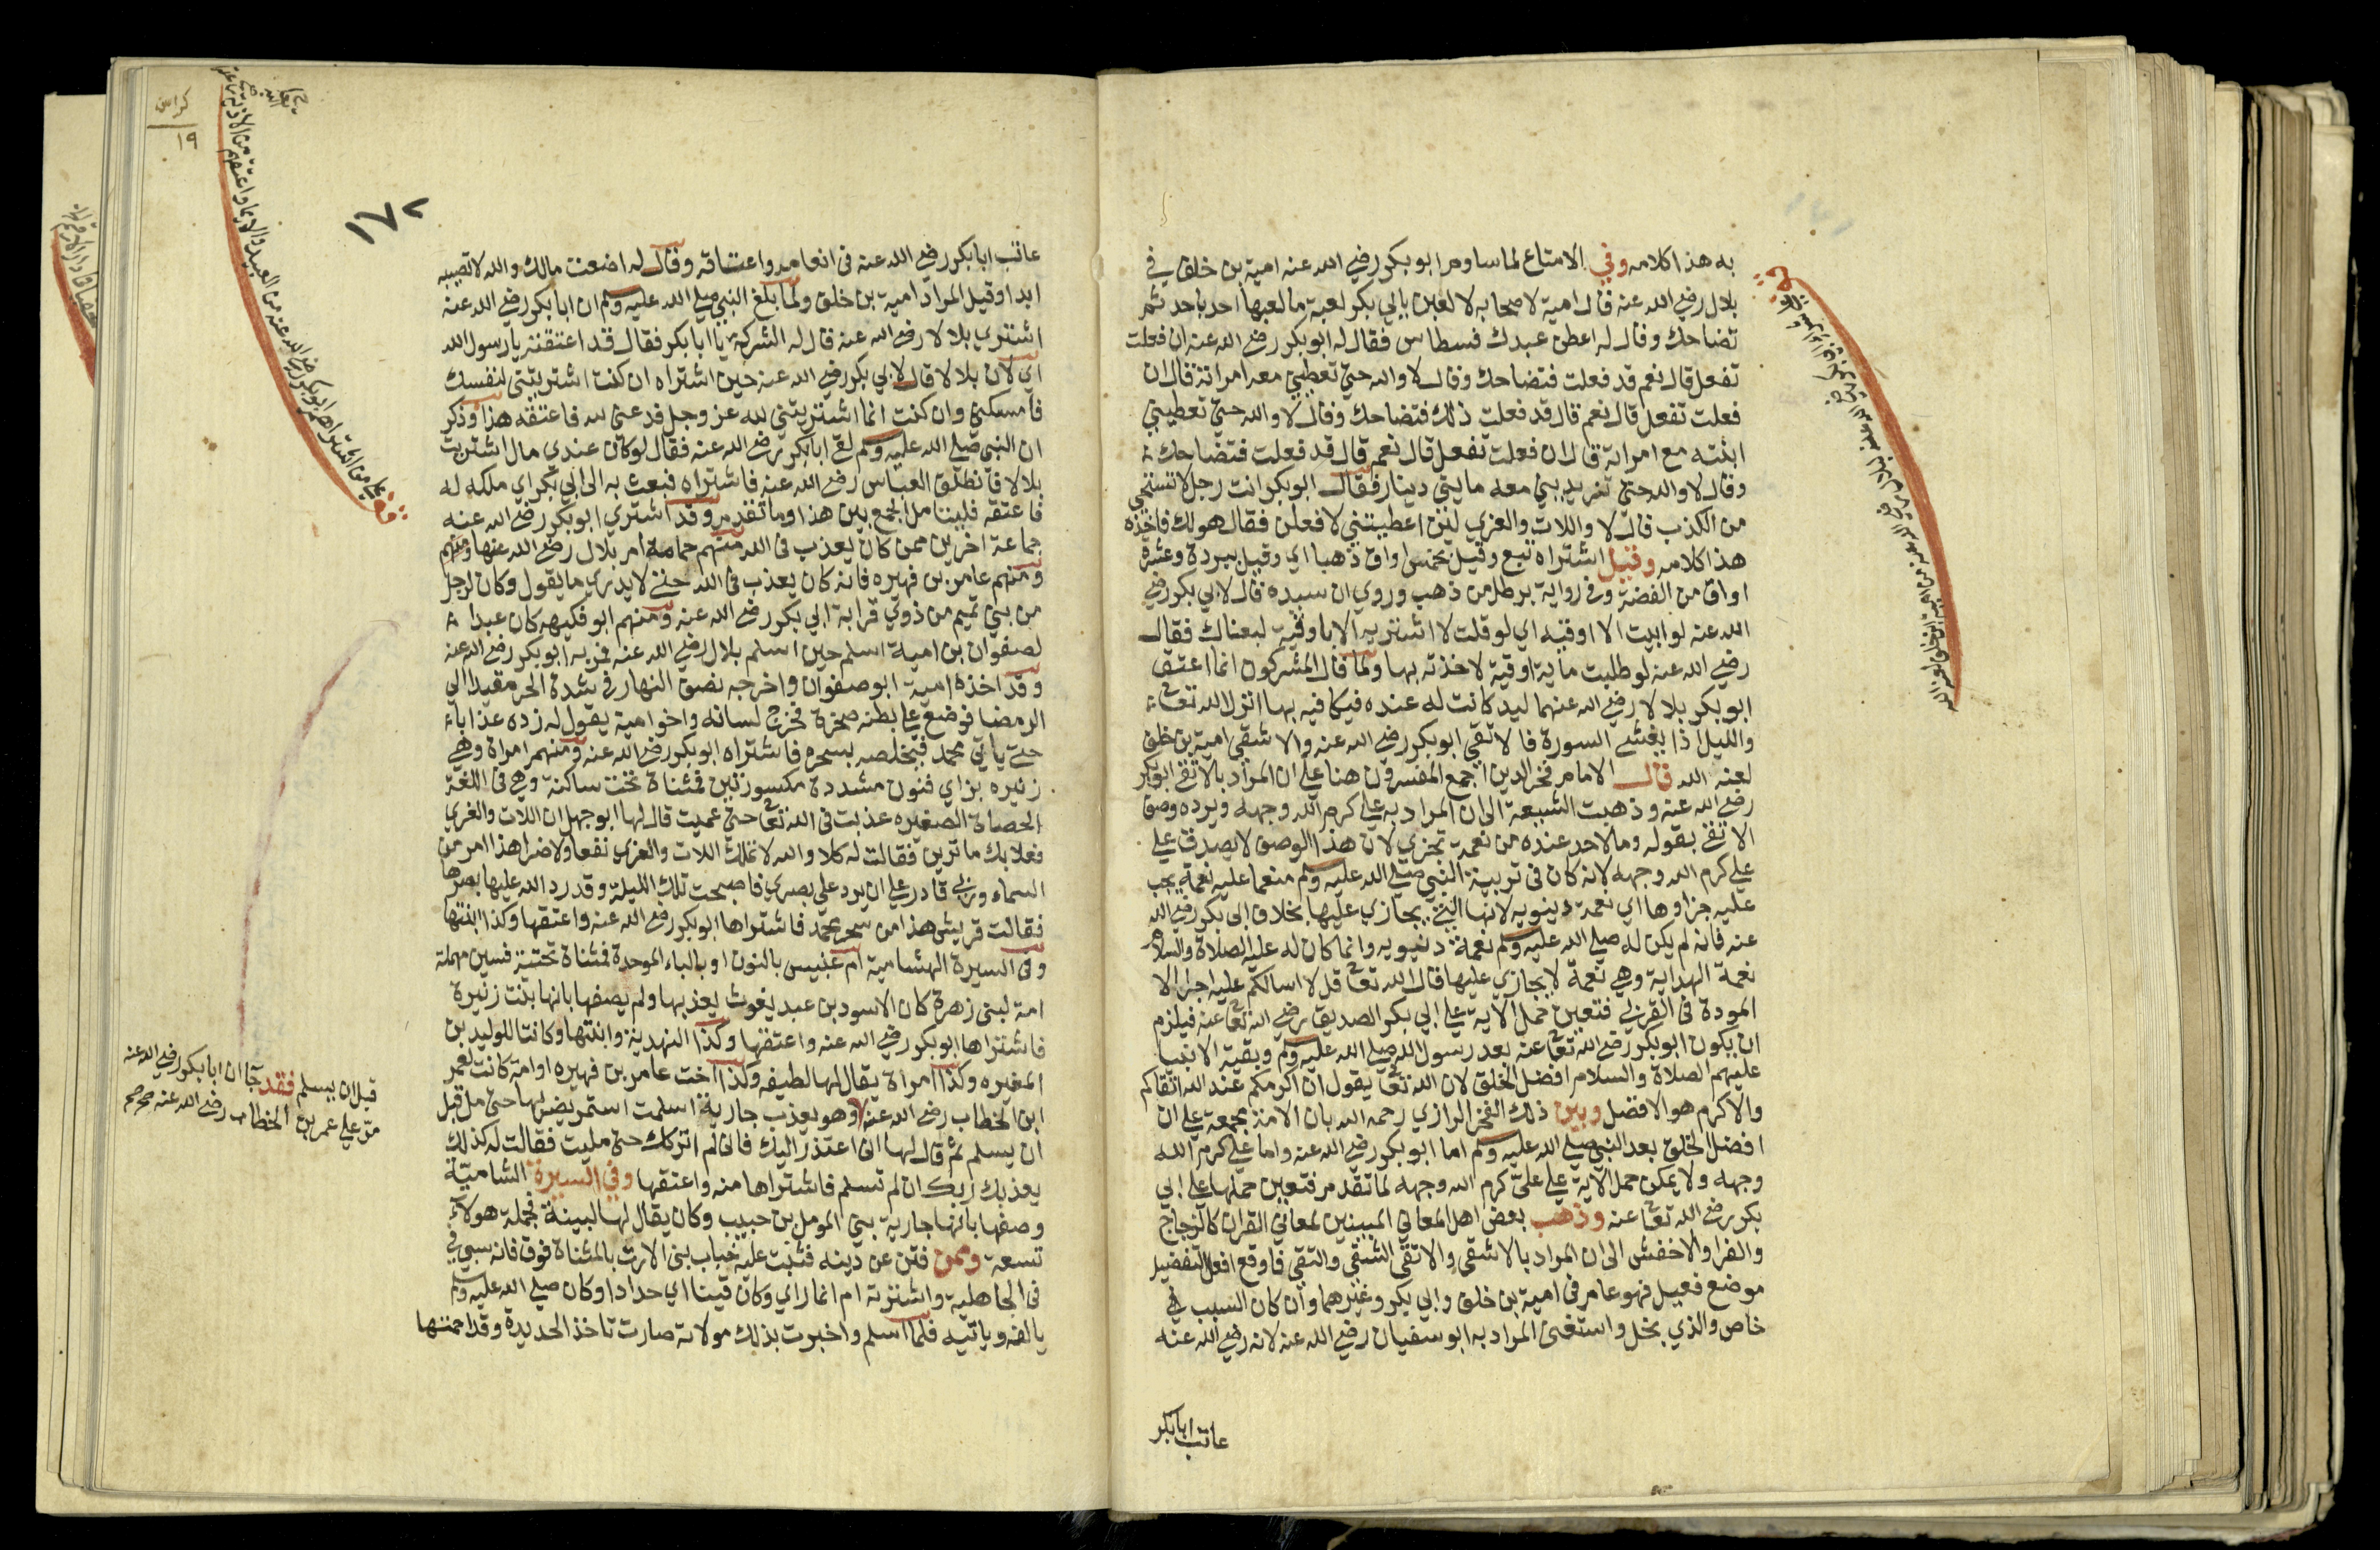 به هذا كلامه وفي الامتاع لما ساوم ابو بكر رضي الله عنه امية بن خلف في
بلال رضي الله عنه قال امية لاصحابه لالعبن بابي بكر لعبة ما لعبها احد باحد ثم
تضاحك وقال له اعطن عبدك فسطاس فقال له ابو بكر رضي الله عنه ان فعلت
تفعل قال نعم قد فعلت فتضاحك وقال لا والله حتي تعطيني معه امراته قال ان
فعلت تفعل قال نعم قال قد فعلت ذلك فتضاحك وقال لا والله حتي تعطيني
ابنته مع امراته قال ان فعلت تفعل قال نعم قال قد فعلت فتضاحك
وقال لا والله حتي تزيدني معه مايتي دينار فقال ابو بكر انت رجل لا تستحي
من الكذب قال لا واللات والعزي لئن اعطيتني لافعلن فقال هو لك فاخذه
هذا كلامه وقيل اشتراه بتسع وقيل بخمس اواق ذهبا اي وقيل ببردة وعشرة
اواق من الفضة وفي رواية برطل من ذهب وروي ان سيده قال لابي بكر رضي
الله عنه لو ابيت الا اوقيه اي لو قلت لا اشتريه الا باوقية لبعناك فقال
رضي الله عنه لو طلبت ماية اوقية لاخذته بها ولما قال المشركون انما اعتق
ابو بكر بلالا رضي الله عنهما ليد كانت له عنده فيكافيه بها انزل الله تعالى
والليل اذا يغشي السورة فالاتقي ابو بكر رضي الله عنه والاشقي امية بن خلف
لعنه الله قال الامام فخر الدين اجمع المفسرون هنا علي ان المراد بالاتقي ابو بكر
رضي الله عنه وذهبت الشيعة الى ان المراد به علي كرم الله وجهه ويرده وصف
الاتقي بقوله وما لاحد عنده من نعمة تجزي لان هذا الوصف لا يصدق علي
علي كرم الله وجهه لانه كان في تربية النبي صلي الله عليه وسلم منعما عليه نعمة يجب
عليه جزاوها اي نعمة دنيويه لانها التي يجازي عليها بخلاف ابي بكر رضي الله
عنه فانه لم يكن له صلي الله عليه وسلم نعمة دنيويه وانما كان له عليه الصلاة والسلام
نعمة الهداية وهي نعمة لا يجازي عليها قال الله تعالى قل لا اسالكم عليه اجرا الا
المودة في القربي فتعين حمل الاية علي ابي بكر الصديق رضي الله تعالى عنه فيلزم
ان يكون ابو بكر رضي الله تعالى عنه بعد رسول الله صلي الله عليه وسلم وبقية الانبيا
عليهم الصلاة والسلام افضل الخلق لان الله تعالى يقول ان اكرمكم عند الله اتقاكم
والاكرم هو الافضل وبين ذلك الفخر الرازي رحمه الله بان الامة مجمعة علي ان
افضل الخلق بعد النبي صلي الله عليه وسلم اما ابو بكر رضي الله عنه واما علي كرم الله
وجهه ولا يمكن حمل الاية علي علي كرم الله وجهه لما تقدم فتعين حملها علي ابي
بكر رضي الله تعالى عنه وذهب بعض اهل المعاني المبينين لمعاني القران كالزجاج
والفرا والاخفش الى ان المراد بالاشقي والاتقي الشقي والتقي فاوقع افعل التفضيل
موضع فعيل فهو عام في امية بن خلف وابي بكر وغيرهما وان كان السبب في
خاص والذي بخل واستغنى المراد به ابو سفيان رضي الله عنه لانه رضي الله عنه
عاتب ابا بكر
كراس
١٩
١٧٢
عاتب ابا بكر رضي الله عنه في انعامه واعتاقه وقال له اضعت مالك والله لا تصيبه
ابدا وقيل المراد امية بن خلف ولما بلغ النبي صلي الله عليه وسلم ان ابا بكر رضي الله عنه
اشتري بلالا رضي الله عنه قال له الشركة يا ابا بكر فقال قد اعتقته يا رسول الله
اي لان بلالا قال لابي بكر رضي الله عنه حين اشتراه ان كنت اشتريتني لنفسك
فامسكني وان كنت انما اشتريتني لله عز وجل فدعني لله فاعتقه هذا وذكر
ان النبي صلي الله عليه وسلم لقي ابا بكر رضي الله عنه فقال لو كان عندي مال اشتريت
بلالا فانطلق العباس رضي الله عنه فاشتراه فبعث به الى ابي بكر اي ملكه له
فاعتقه فليتامل الجمع بين هذا وما تقدم وقد اشتري ابو بكر رضي الله عنه
جماعة اخرين ممن كان يعذب في الله منهم حمامة ام بلال رضي الله عنها ومنهم
ومنهم عامر بن فهيره فانه كان يعذب في الله حتي لا يدري ما يقول وكان لرجل
من بني تميم من ذوي قرابة ابي بكر رضي الله عنه ومنهم ابو فكيهه كان عبدا
لصفوان بن امية اسلم حين اسلم بلال رضي الله عنه فمر به ابو بكر رضي الله عنه
وقد اخذه امية ابو صفوان واخرجه نصف النهار في شدة الحر مقيدا الي
الرمضا فوضع علي بطنه صخرة فخرج لسانه واخو امية يقول له زده عذابا
حتي ياتي محمد فيخلصه بسحره فاشتراه ابو بكر رضي الله عنه ومنهم امراة وهي
زنيره بزاي فنون مشددة مكسورتين فمثناة تحت ساكنة وهي في اللغة
الحصاة الصغيره عذبت في الله تعالى حتي عميت قال لها ابو جهل ان اللات والعزي
فعلا بك ما ترين فقالت له كلا والله لا تملك اللات والعزي نفعا ولا ضرا هذا امر من
السماء وربي قادر علي ان يرد علي بصري فاصبحت تلك الليلة وقد رد الله عليها بصرها
فقالت قريش هذا من سحر محمد فاشتراها ابو بكر رضي الله عنه واعتقها وكذا ابنتها
وفي السيرة الهشامية ام عنيس بالنون او بالباء الموحدة فمثناة تحتية فسين مهملة
امة لبني زهرة كان الاسود بن عبد يغوث يعذبها ولم يصفها بانها بنت زنيرة
فاشتراها ابو بكر رضي الله عنه واعتقها وكذا النهدية وابنتها وكانتا للوليد بن
المغيره وكذا امراة يقال لها لطيفه وكذا اخت عامر بن فهيره او امه كانت لعمر
ابن الخطاب رضي الله عنه وهو يعذب جارية اسلمت استمر يضربها حتي مل قبل
ان يسلم ثم قال لها اني اعتذر اليك فاني لم اتركك حتي مليت فقالت له كذلك
يعذبك ربك ان لم تسلم فاشتراها منه واعتقها وفي السيرة الشامية
وصفها بانها جارية بني المومل بن حبيب وكان يقال لها لبينة فجملة هولاء
تسعة وممن فتن عن دينه فثبت عليه خباب بن الارت بالمثناة فوق فانه سبي في
في الجاهلية واشترته ام انمار اي وكان قينا اي حدادا وكان صلي الله عليه وسلم
يالفه وياتيه فلما اسلم واخبرت بذلك مولاته صارت تاخذ الحديدة وقد احمتها
قبل ان يسلم فقد جاء ان ابا بكر رضي الله عنه
مر علي عمر بن الخطاب رضي الله عنه